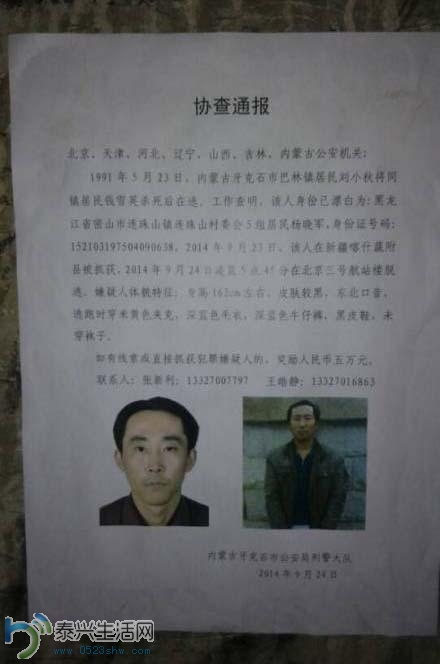 协查通报
北京、天津、河北、辽宁、山西、吉林、内蒙古公安机关:
1991年5月23日，内蒙古牙克石市巴林镇居民刘小秋将同
镇居民钱雪英杀死后在逃。工作查明，该人身份已漂白为:黑龙
江省密山市连珠山镇连珠山村委会5组居民杨晓军,身份证号码:
152103197504090638，2014年9月23日，该人在新疆喀什疏附
县被抓获，2014年9月24日凌晨5点45分在北京三号航站楼脱
逃。嫌疑人体貌特征：身高162cm左右，皮肤较黑，东北口音，
逃跑时穿米黄色夹克，深蓝色毛衣，深蓝色牛仔裤，黑皮鞋，未
穿袜子。
如有线索或直接抓获犯罪嫌疑人的，奖励人民币五万元。
联系人：张新利：13327007797 王皓静：13327016863
内蒙古牙克石市公安局刑警大队
2014年9月24日
泰兴生活网
www.0523shw.com